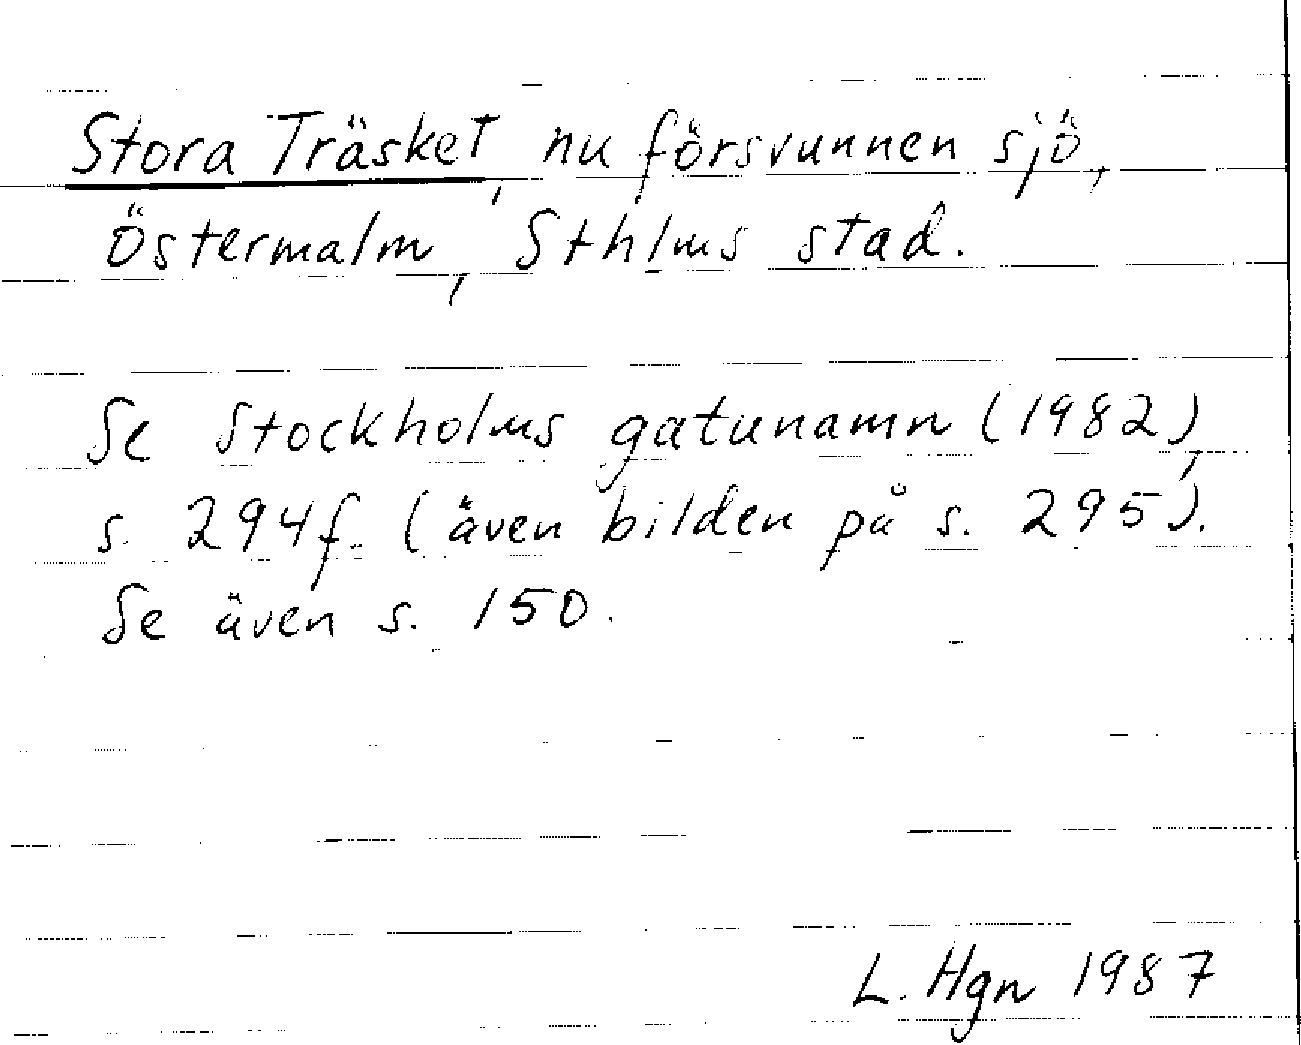 Stora Träsket, nu försvunnen sjö,
Östermalm, Sthlms stad.
Se Stockholms gatunamn (1982),
s. 294f. (även bilden på s. 295).
Se även s. 150.
L. Hgn 1987